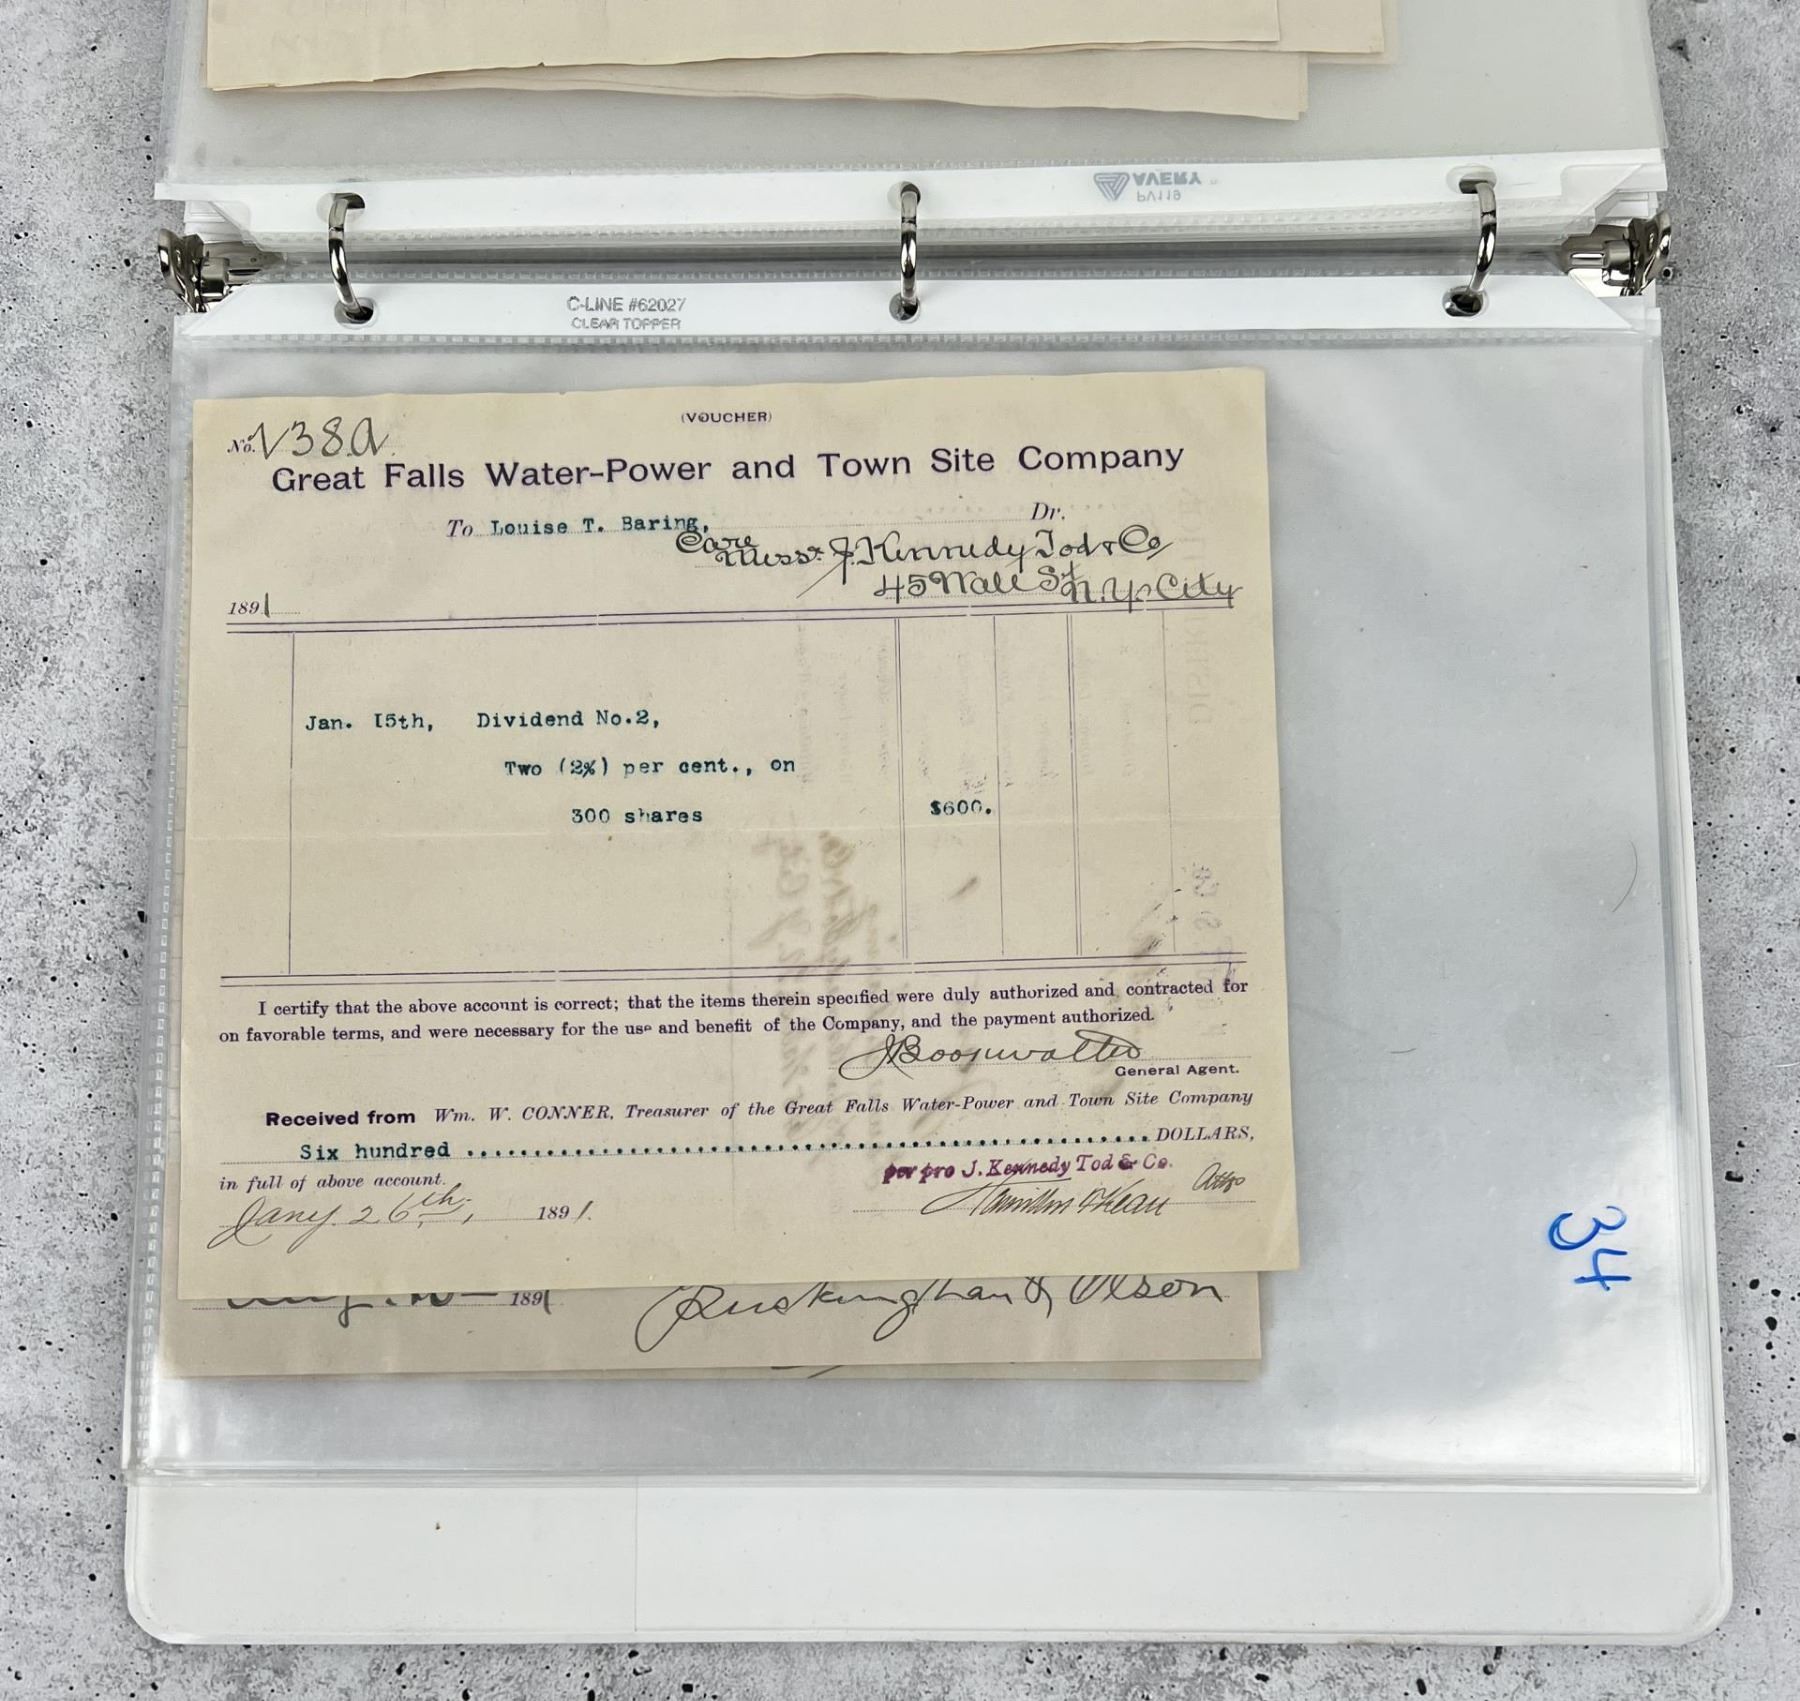 AVERY
PV119
C-LINE #62027
CLEAR TOPPER
(VOUCHER)
No. V38a
Great Falls Water-Power and Town Site Company
To Louise T. Baring, Dr.
Care Messrs J. Kennedy Tod & Co
45 Wall St N.Y. City
1891
Jan. 15th, Dividend No.2,
Two (2%) per cent., on
300 shares $600.
I certify that the above account is correct; that the items therein specified were duly authorized and contracted for
on favorable terms, and were necessary for the use and benefit of the Company, and the payment authorized.
J Bookwalter
General Agent.
Received from Wm. W. CONNER, Treasurer of the Great Falls Water-Power and Town Site Company
Six hundred DOLLARS,
in full of above account.
per pro J. Kennedy Tod & Co.
Jany. 26th, 1891.
1891 & Olson
34